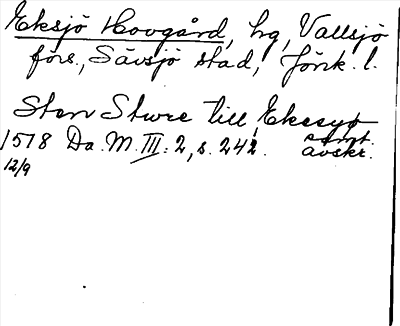 Eksjö Hovgård, hg, Vallsjö
förs., Sävsjö stad, Jönk. l.
Sten Sture till Ekesyø
1578 Da. M. III: 2, s. 242. samt. avskr.
12/9